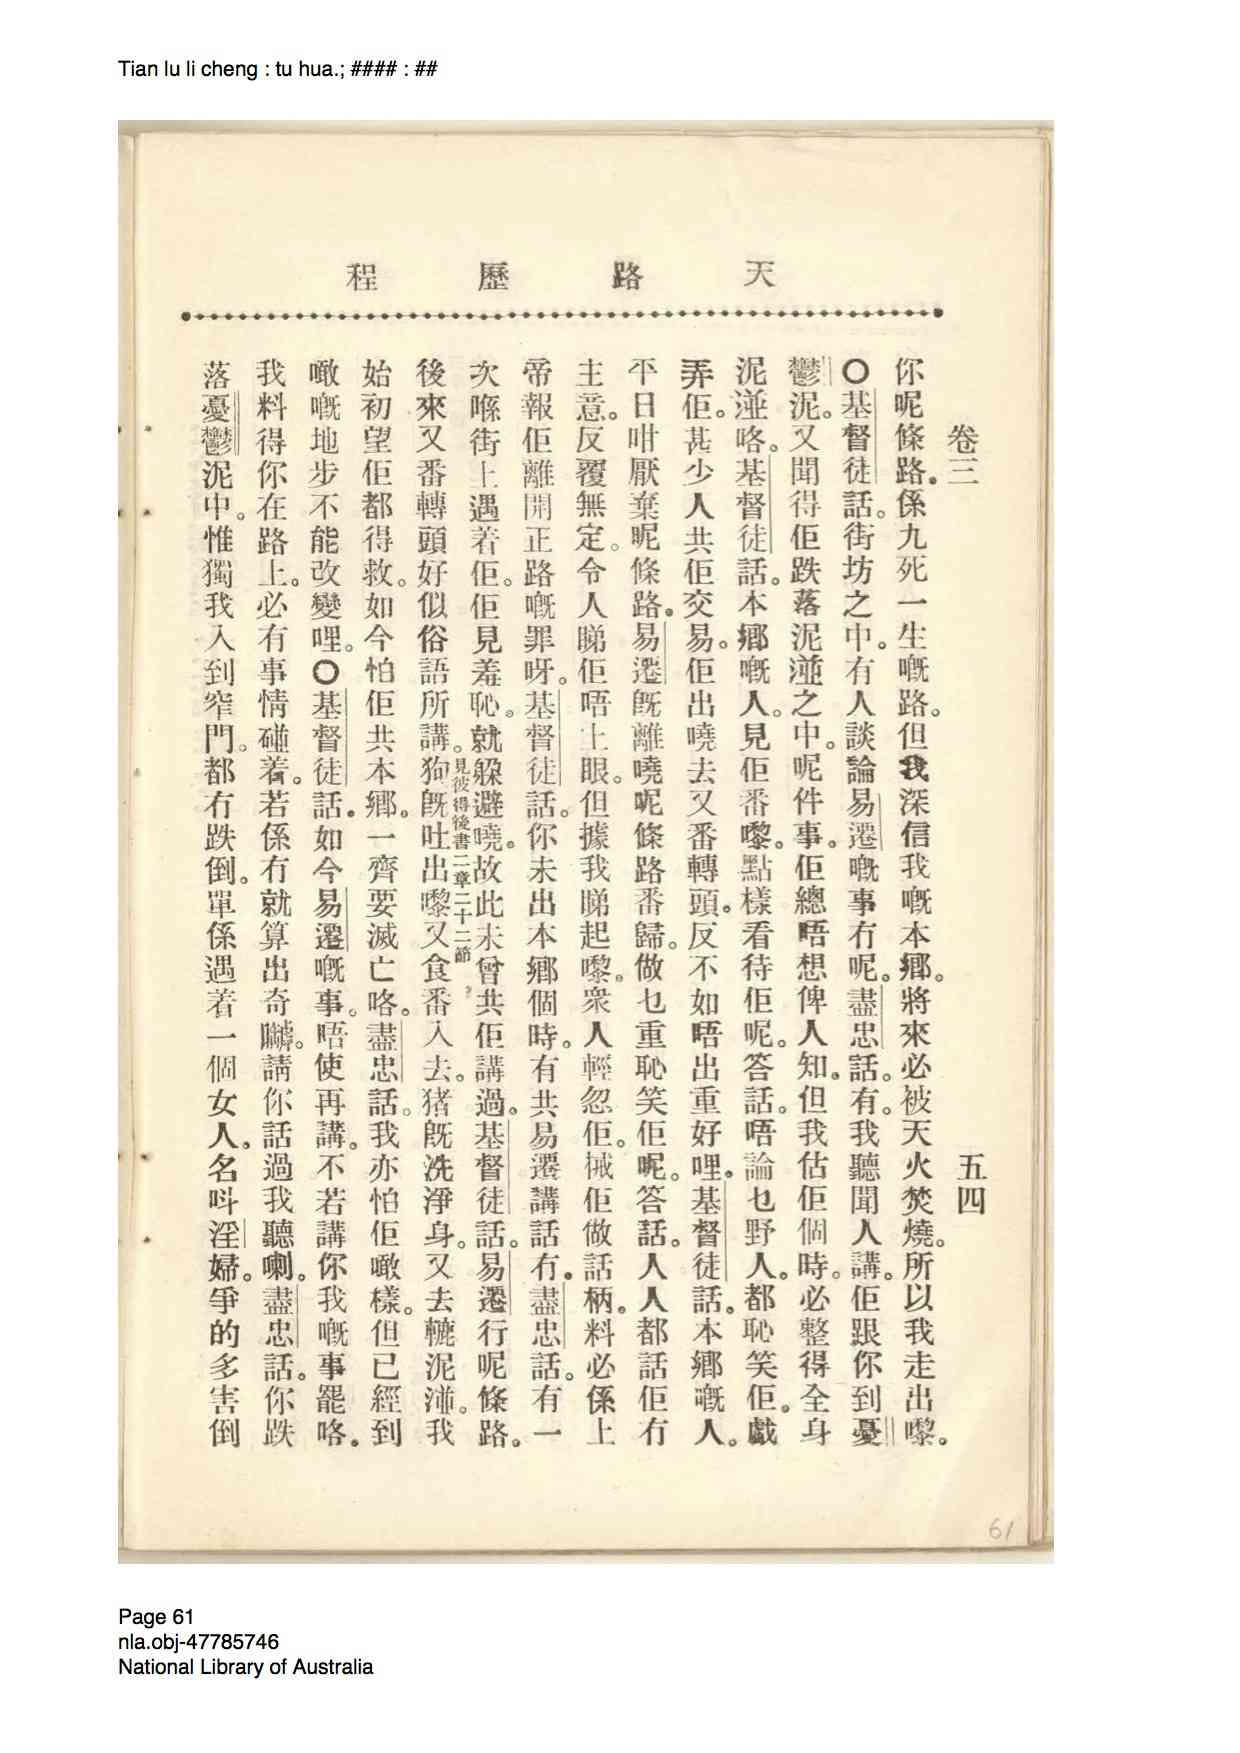 Tian lu li cheng : tu hua.; #### : ##
天路歷程
卷三
五四
你呢條路。係九死一生嘅路。但我深信我嘅本鄉。將來必被天火焚燒。所以我走出嚟。
〇基督徒話。街坊之中。有人談論易遷嘅事冇呢。盡忠話。有。我聽聞人講。佢跟你到憂
鬱泥。又聞得佢跌落泥湴之中。呢件事。佢總唔想俾人知。但我估佢個時。必整得全身
泥湴咯。基督徒話。本鄉嘅人。見佢番嚟。點樣看待佢呢。答話。唔論乜野人。都恥笑佢。戲
弄佢。甚少人共佢交易。佢出曉去又番轉頭。反不如唔出重好哩。基督徒話。本鄉嘅人。
平日咁厭棄呢條路。易遷旣離曉呢條路番歸。做乜重恥笑佢呢。答話。人人都話佢冇
主意。反覆無定。令人睇佢唔上眼。但據我睇起嚟。衆人輕忽佢。械佢做話柄。料必係上
帝報佢離開正路嘅罪呀。基督徒話。你未出本鄉個時。有共易遷講話冇。盡忠話。有一
次喺街上遇着佢。佢見羞恥。就躲避曉。故此未曾共佢講過。基督徒話。易遷行呢條路。
後來又番轉頭好似俗語所講。狗旣吐出嚟又食番入去。猪旣洗淨身。又去轆泥湴。我
見彼得後書二章二十二節
始初望佢都得救。如今怕佢共本鄉。一齊要滅亡咯。盡忠話。我亦怕佢噉樣。但已經到
噉嘅地步不能改變哩。〇基督徒話。如今易遷嘅事。唔使再講。不若講你我嘅事罷咯。
我料得你在路上。必有事情碰着。若係冇就算出奇嘞。請你話過我聽喇。盡忠話。你跌
落憂鬱泥中。惟獨我入到窄門。都冇跌倒。單係遇着一個女人。名呌淫婦。爭的多害倒
61
Page 61
nla.obj-47785746
National Library of Australia